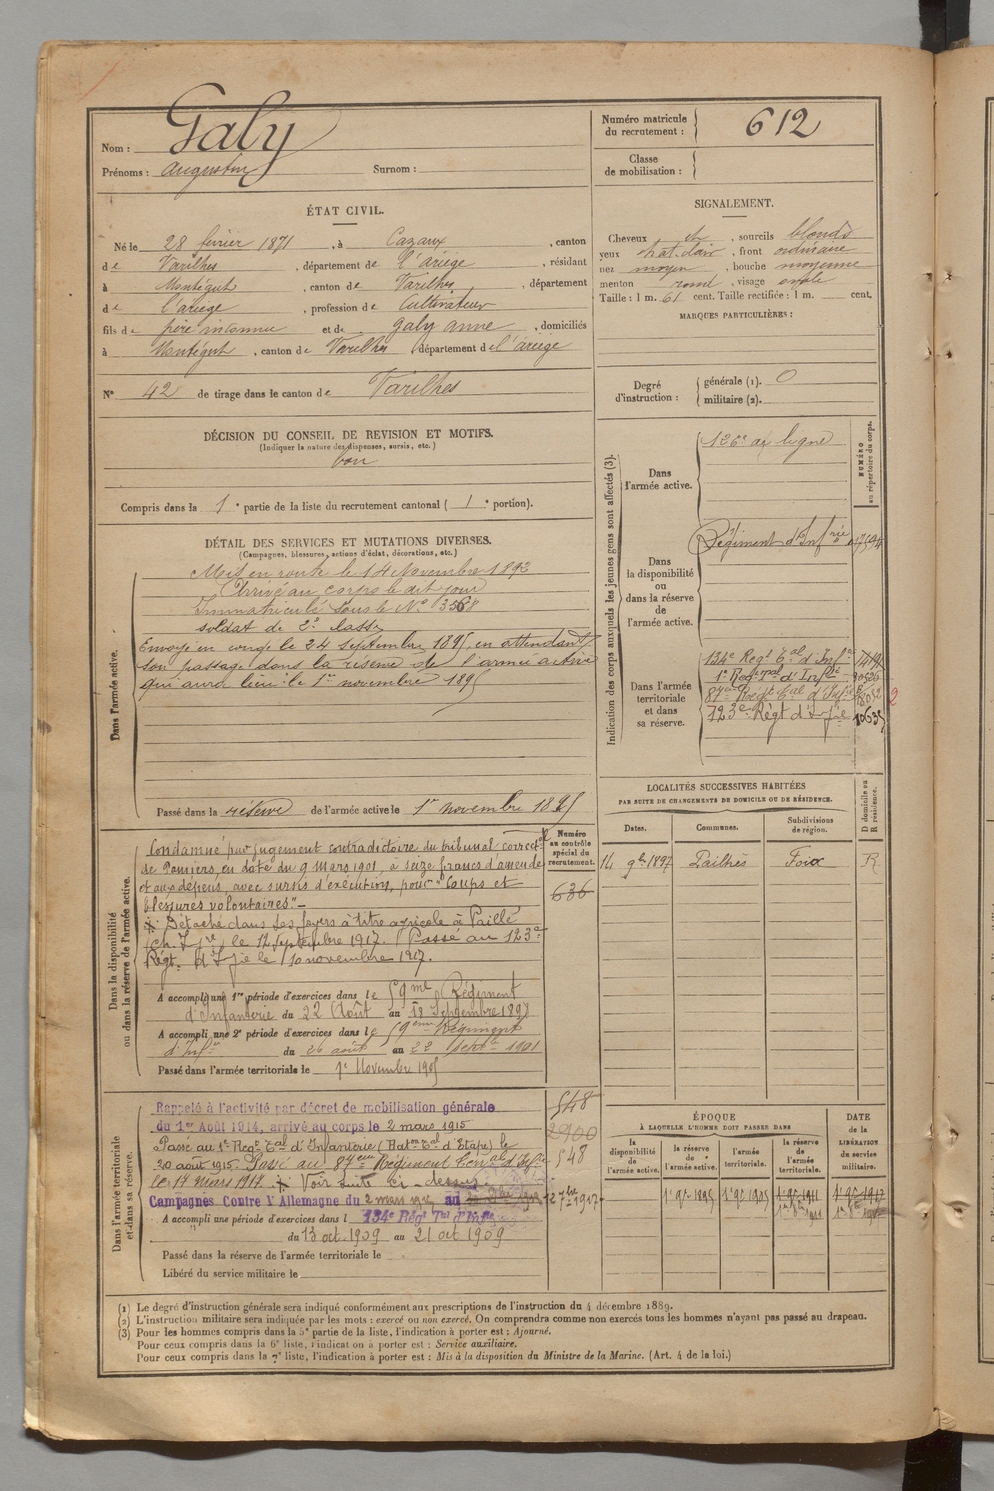 Nom : Galy
Prénoms : augustin Surnom :
Numéro matricule du recrutement : 612
Classe de mobilisation :
ÉTAT CIVIL.
Né le 28 février 1871, à Cazaux, canton
de Varilhes, département de l'ariege, résidant
à Montégut, canton de Varilhes, département
de l'ariege, profession de Cultivateur
fils de père inconnu et de Galy anne, domiciliés
à Montégut, canton de Varilhes, département de l'ariege
N° 42 de tirage dans le canton de Varilhes
SIGNALEMENT.
Cheveux ch, sourcils blonds
yeux chat. clair, front ordinaire
nez moyen, bouche moyenne
menton rond, visage ovale
Taille : 1 m. 61 cent. Taille rectifiée : 1 m. cent.
MARQUES PARTICULIÈRES :
Degré d'instruction : générale (1). 0
militaire (2).
DÉCISION DU CONSEIL DE REVISION ET MOTIFS.
(Indiquer la nature des dispenses, sursis, etc.)
bon
Compris dans la 1e partie de la liste du recrutement cantonal ( 1e portion).
DÉTAIL DES SERVICES ET MUTATIONS DIVERSES.
(Campagnes, blessures, actions d'éclat, décorations, etc.)
Dans l'armée active.
Mis en route le 14 Novembre 1892
Arrivé au corps le dit jour
Immatriculé sous le N° 3568
soldat de 2e classe
Envoyé en congé le 24 septembre 1895, en attendant
son passage dans la réserve de l'armée active
qui aura lieu le 1er novembre 1895
Passé dans la réserve de l'armée active le 1er novembre 1895
Indication des corps auxquels les jeunes gens sont affectés (3).
NUMÉRO au répertoire du corps.
Dans l'armée active.
126e de ligne
Dans la disponibilité ou dans la réserve de l'armée active.
Régiment d'Infrie
Dans l'armée territoriale et dans sa réserve.
134e Regt Tal d'Infie
1e Reg Tal d'Infie
87eme Regt Tal d'Infie
123e Régt d'Infie 10635
2
LOCALITÉS SUCCESSIVES HABITÉES
PAR SUITE DE CHANGEMENTS DE DOMICILE OU DE RÉSIDENCE.
Dates. Communes. Subdivisions de région. D domicile ou R résidence.
14 9bre 1897 Pailhès Foix R
Dans la disponibilité ou dans la réserve de l'armée active.
Numéro au contrôle spécial du recrutement.
636
Condamné par jugement contradictoire du tribunal correctel
de Pamiers, en date du 9 mars 1901, à seize francs d'amende
et aux dépens, avec sursis d'exécution, pour "Coups et
blessures volontaires".
Détaché dans ses foyers à titre agricole à Paillé
(Ch. Ire) le 12 Septembre 1917. Passé au 123e
Régt. d'Ifie le 10 novembre 1917.
A accompli une 1re période d'exercices dans le 59me Régiment
d'Infanterie du 22 Août au 18 Septembre 1898
A accompli une 2e période d'exercices dans le 59eme Régiment
d'Infie du 26 août au 22 septe 1901
Passé dans l'armée territoriale le 1er Novembre 1905
Dans l'armée territoriale et dans sa réserve.
548
2900
548
Rappelé à l'activité par décret de mobilisation générale
du 1er Août 1914, arrivé au corps le 2 mars 1915
Passé au 1er Regt Tal d'Infanterie (Baton Tal d'Etape) le
20 août 1915. Passé au 87eme Régiment Terral d'Infie
le 17 mars 1917. Voir suite Ci-dessus.
Campagnes Contre l'Allemagne du 2 mars 1915 au
A accompli une période d'exercices dans l 134e Régt Tal d'Infie
du 13 oct. 1909 au 21 oct 1909
Passé dans la réserve de l'armée territoriale le
Libéré du service militaire le
ÉPOQUE
À LAQUELLE L'HOMME DOIT PASSER DANS
DATE DE LA LIBÉRATION du service militaire.
la disponibilité de l'armée active. la réserve de l'armée active. l'armée territoriale. la réserve de l'armée territoriale.
1er 9bre 1895 1er 9bre 1905 1er 9bre 1911 1er 9bre 1917
(1) Le degré d'instruction générale sera indiqué conformément aux prescriptions de l'instruction du 4 décembre 1889.
(2) L'instruction militaire sera indiquée par les mots : exercé ou non exercé. On comprendra comme non exercés tous les hommes n'ayant pas passé au drapeau.
(3) Pour les hommes compris dans la 5e partie de la liste, l'indication à porter est : Ajourné.
Pour ceux compris dans la 6e liste, l'indication à porter est : Service auxiliaire.
Pour ceux compris dans la 7e liste, l'indication à porter est : Mis à la disposition du Ministre de la Marine. (Art. 4 de la loi.)